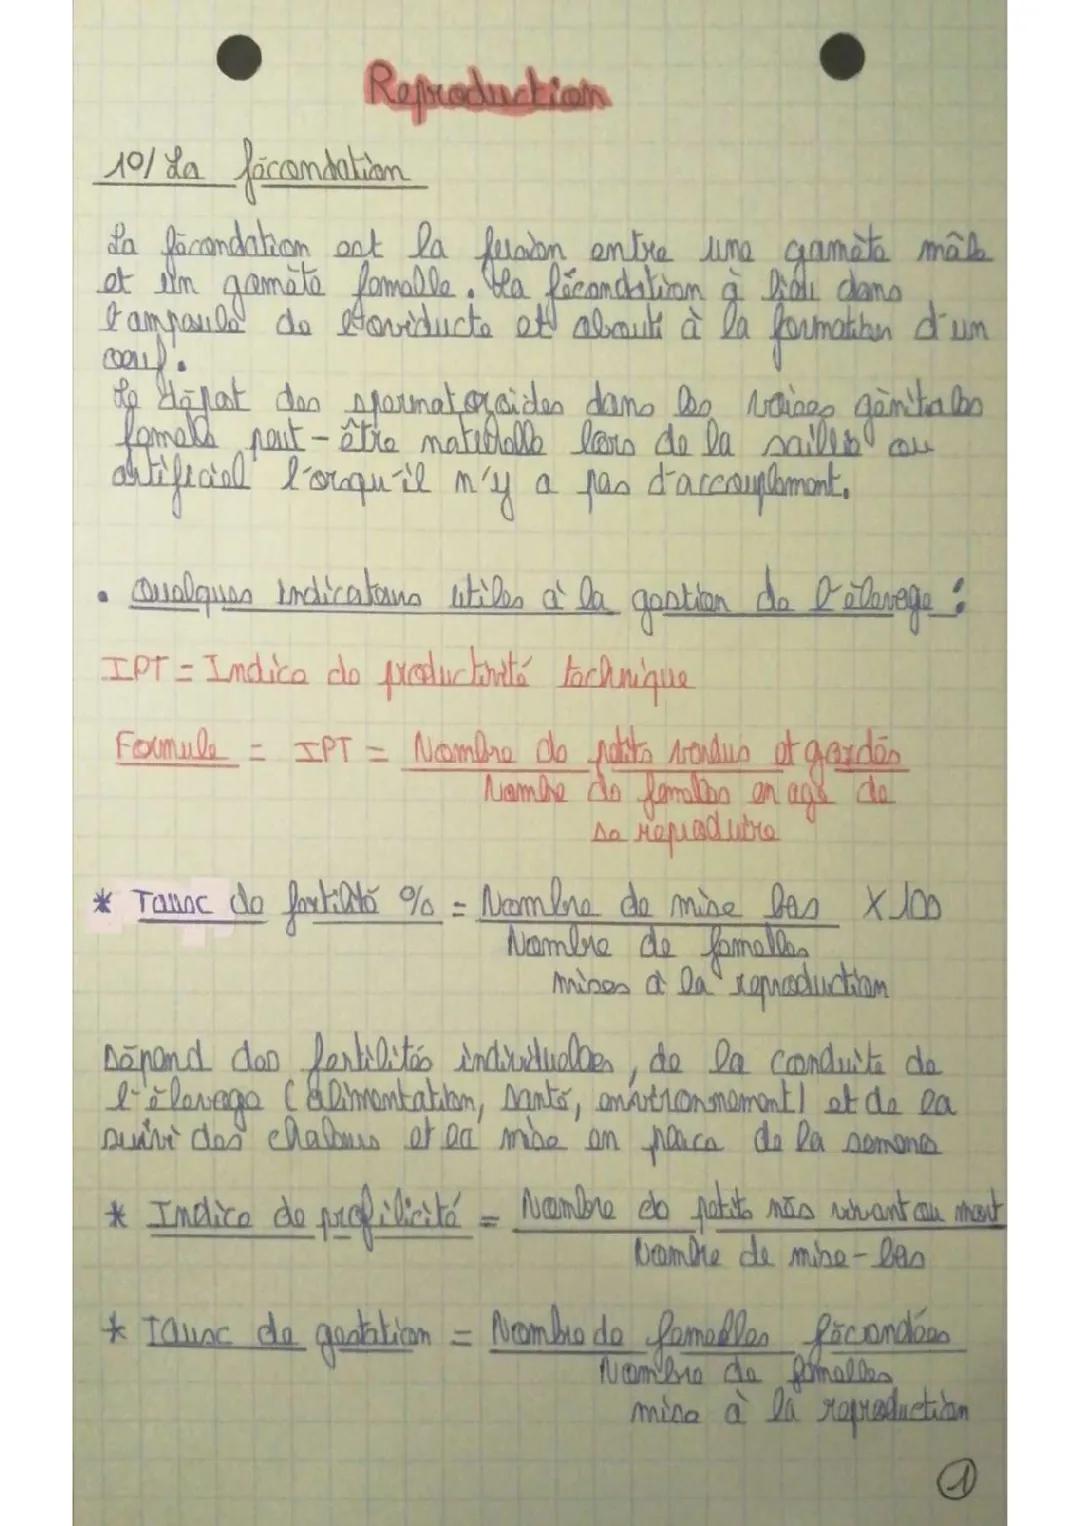 Reproduction
1°/ La fécondation
La fécondation est la fusion entre une gamète mâle
et un gamète femelle. La fécondation à lieu dans
l'ampoule de l'oviducte et abouti à la formation d'un
oeuf.
Le dépot des spermatozoides dans les voies génitales
femelle peut-être naturelle lors de la saillie ou
artificiel l'orsqu'il n'y a pas d'accouplement.
• Quelques indicateurs utiles à la gestion de l'élevage :
IPT = Indice de productivité technique
Formule = IPT = Nombre de petits vendus et gardés
Nombre de femelles en age de
se reproduire
* Taux de fertilité % = Nombre de mise bas X 100
Nombre de femelles
mises à la reproduction
Dépend des fertilités individuelles, de la conduite de
l'élevage (alimentation, santé, environnement) et de la
suivi des chaleurs et la mise en place de la semence
* Indice de profilicité = Nombre de petits nés vivant ou mort
Nombre de mise-bas
* Taux de gestation = Nombre de femelles fécondées
Nombre de femelles
mise à la reproduction
1